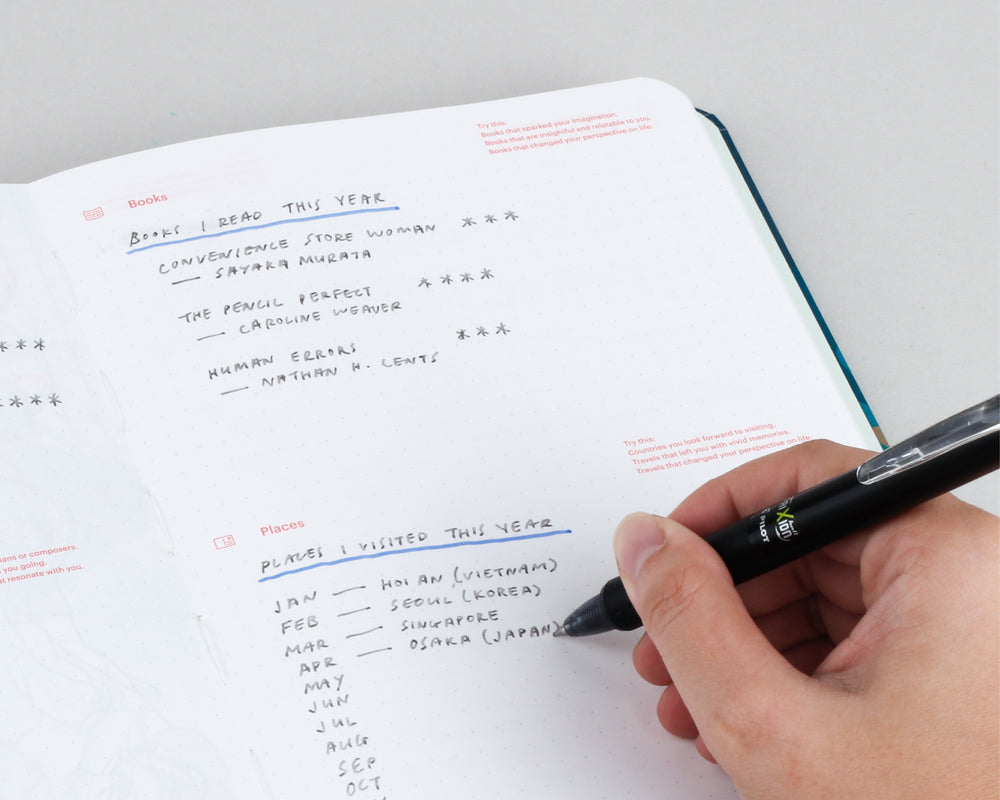 Try this:
Books that sparked your imagination.
Books that are insightful and relatable to you.
Books that changed your perspective on life.
Books
BOOKS I READ THIS YEAR
CONVENIENCE STORE WOMAN ***
— SAYAKA MURATA
THE PENCIL PERFECT ****
— CAROLINE WEAVER
HUMAN ERRORS ***
— NATHAN H. LENTS
***
***
Try this:
Countries you look forward to visiting.
Travels that left you with vivid memories.
Travels that changed your perspective on life.
Places
PLACES I VISITED THIS YEAR
JAN — HOI AN (VIETNAM)
FEB — SEOUL (KOREA)
MAR — SINGAPORE
APR — OSAKA (JAPAN)
MAY
JUN
JUL
AUG
SEP
OCT
or composers.
you going.
that resonate with you.
PILOT